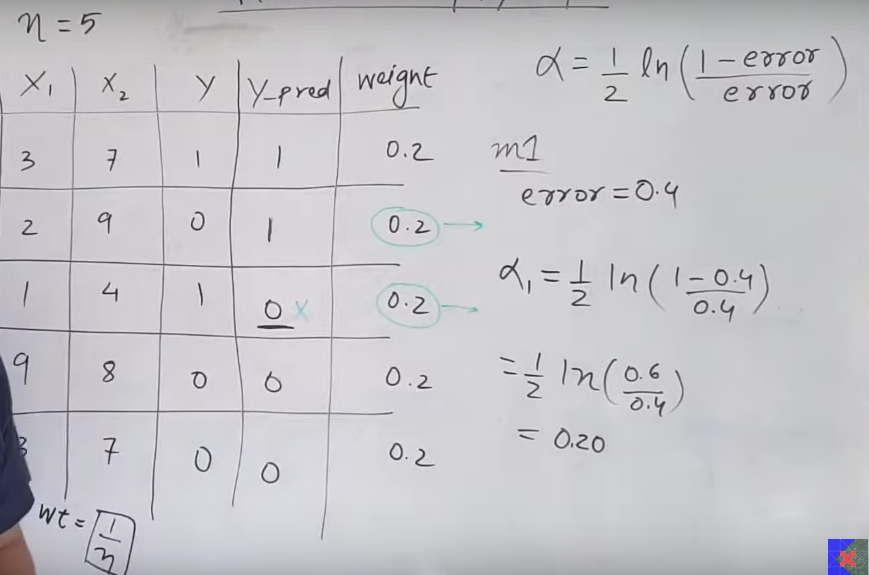 n = 5
X₁ X₂ Y Y_pred weight
3 7 1 1 0.2
2 9 0 1 0.2 →
1 4 1 0 x 0.2 →
9 8 0 0 0.2
3 7 0 0 0.2
wt = 1/n
α = 1/2 ln (1 - error / error)
m1
error = 0.4
α₁ = 1/2 ln (1 - 0.4 / 0.4)
= 1/2 ln (0.6 / 0.4)
= 0.20